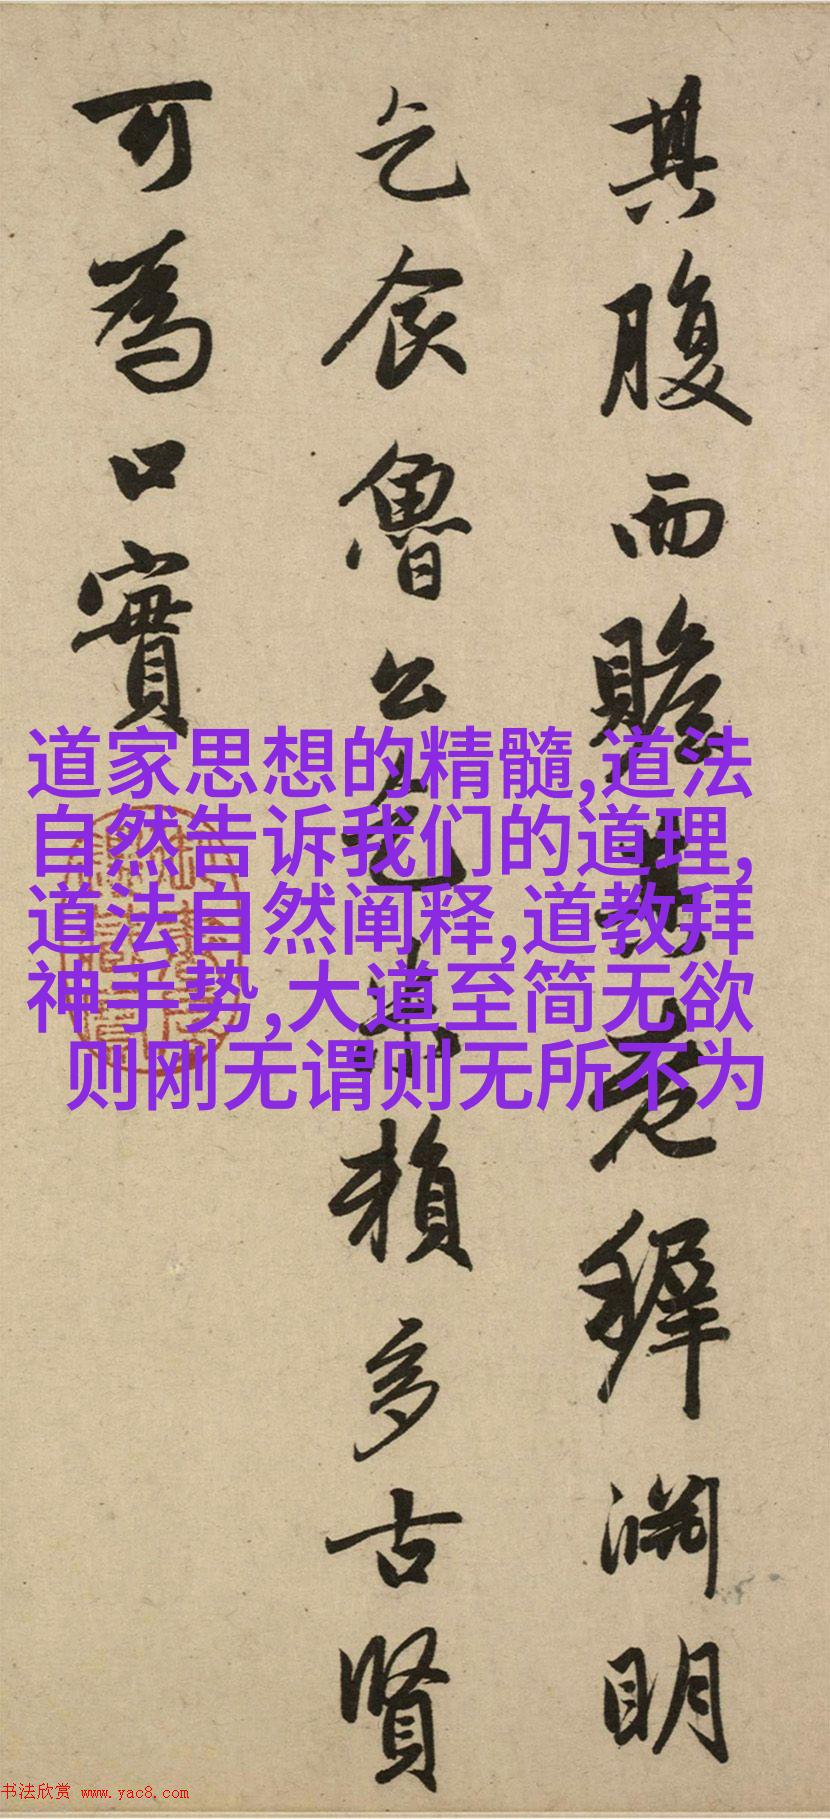 其腹而贍其老穉淵明
乞食魯公乞米賴多古賢
可為口實
道家思想的精髓,道法
自然告诉我们的道理,
道法自然阐释,道教拜
神手势,大道至简无欲
则刚无谓则无所不为
书法欣赏 www.yac8.com